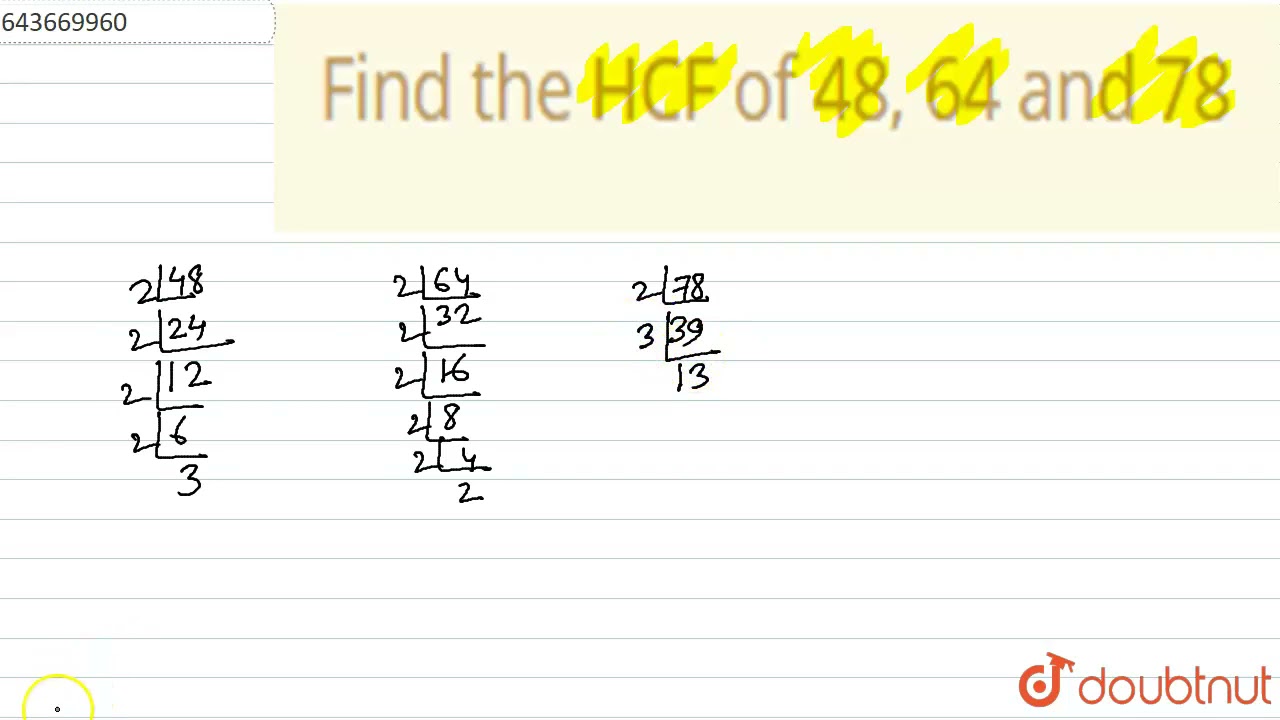 643669960
Find the HCF of 48, 64 and 78
2 48
2 24
2 12
2 6
3
2 64
2 32
2 16
2 8
2 4
2
2 78
3 39
13
doubtnut